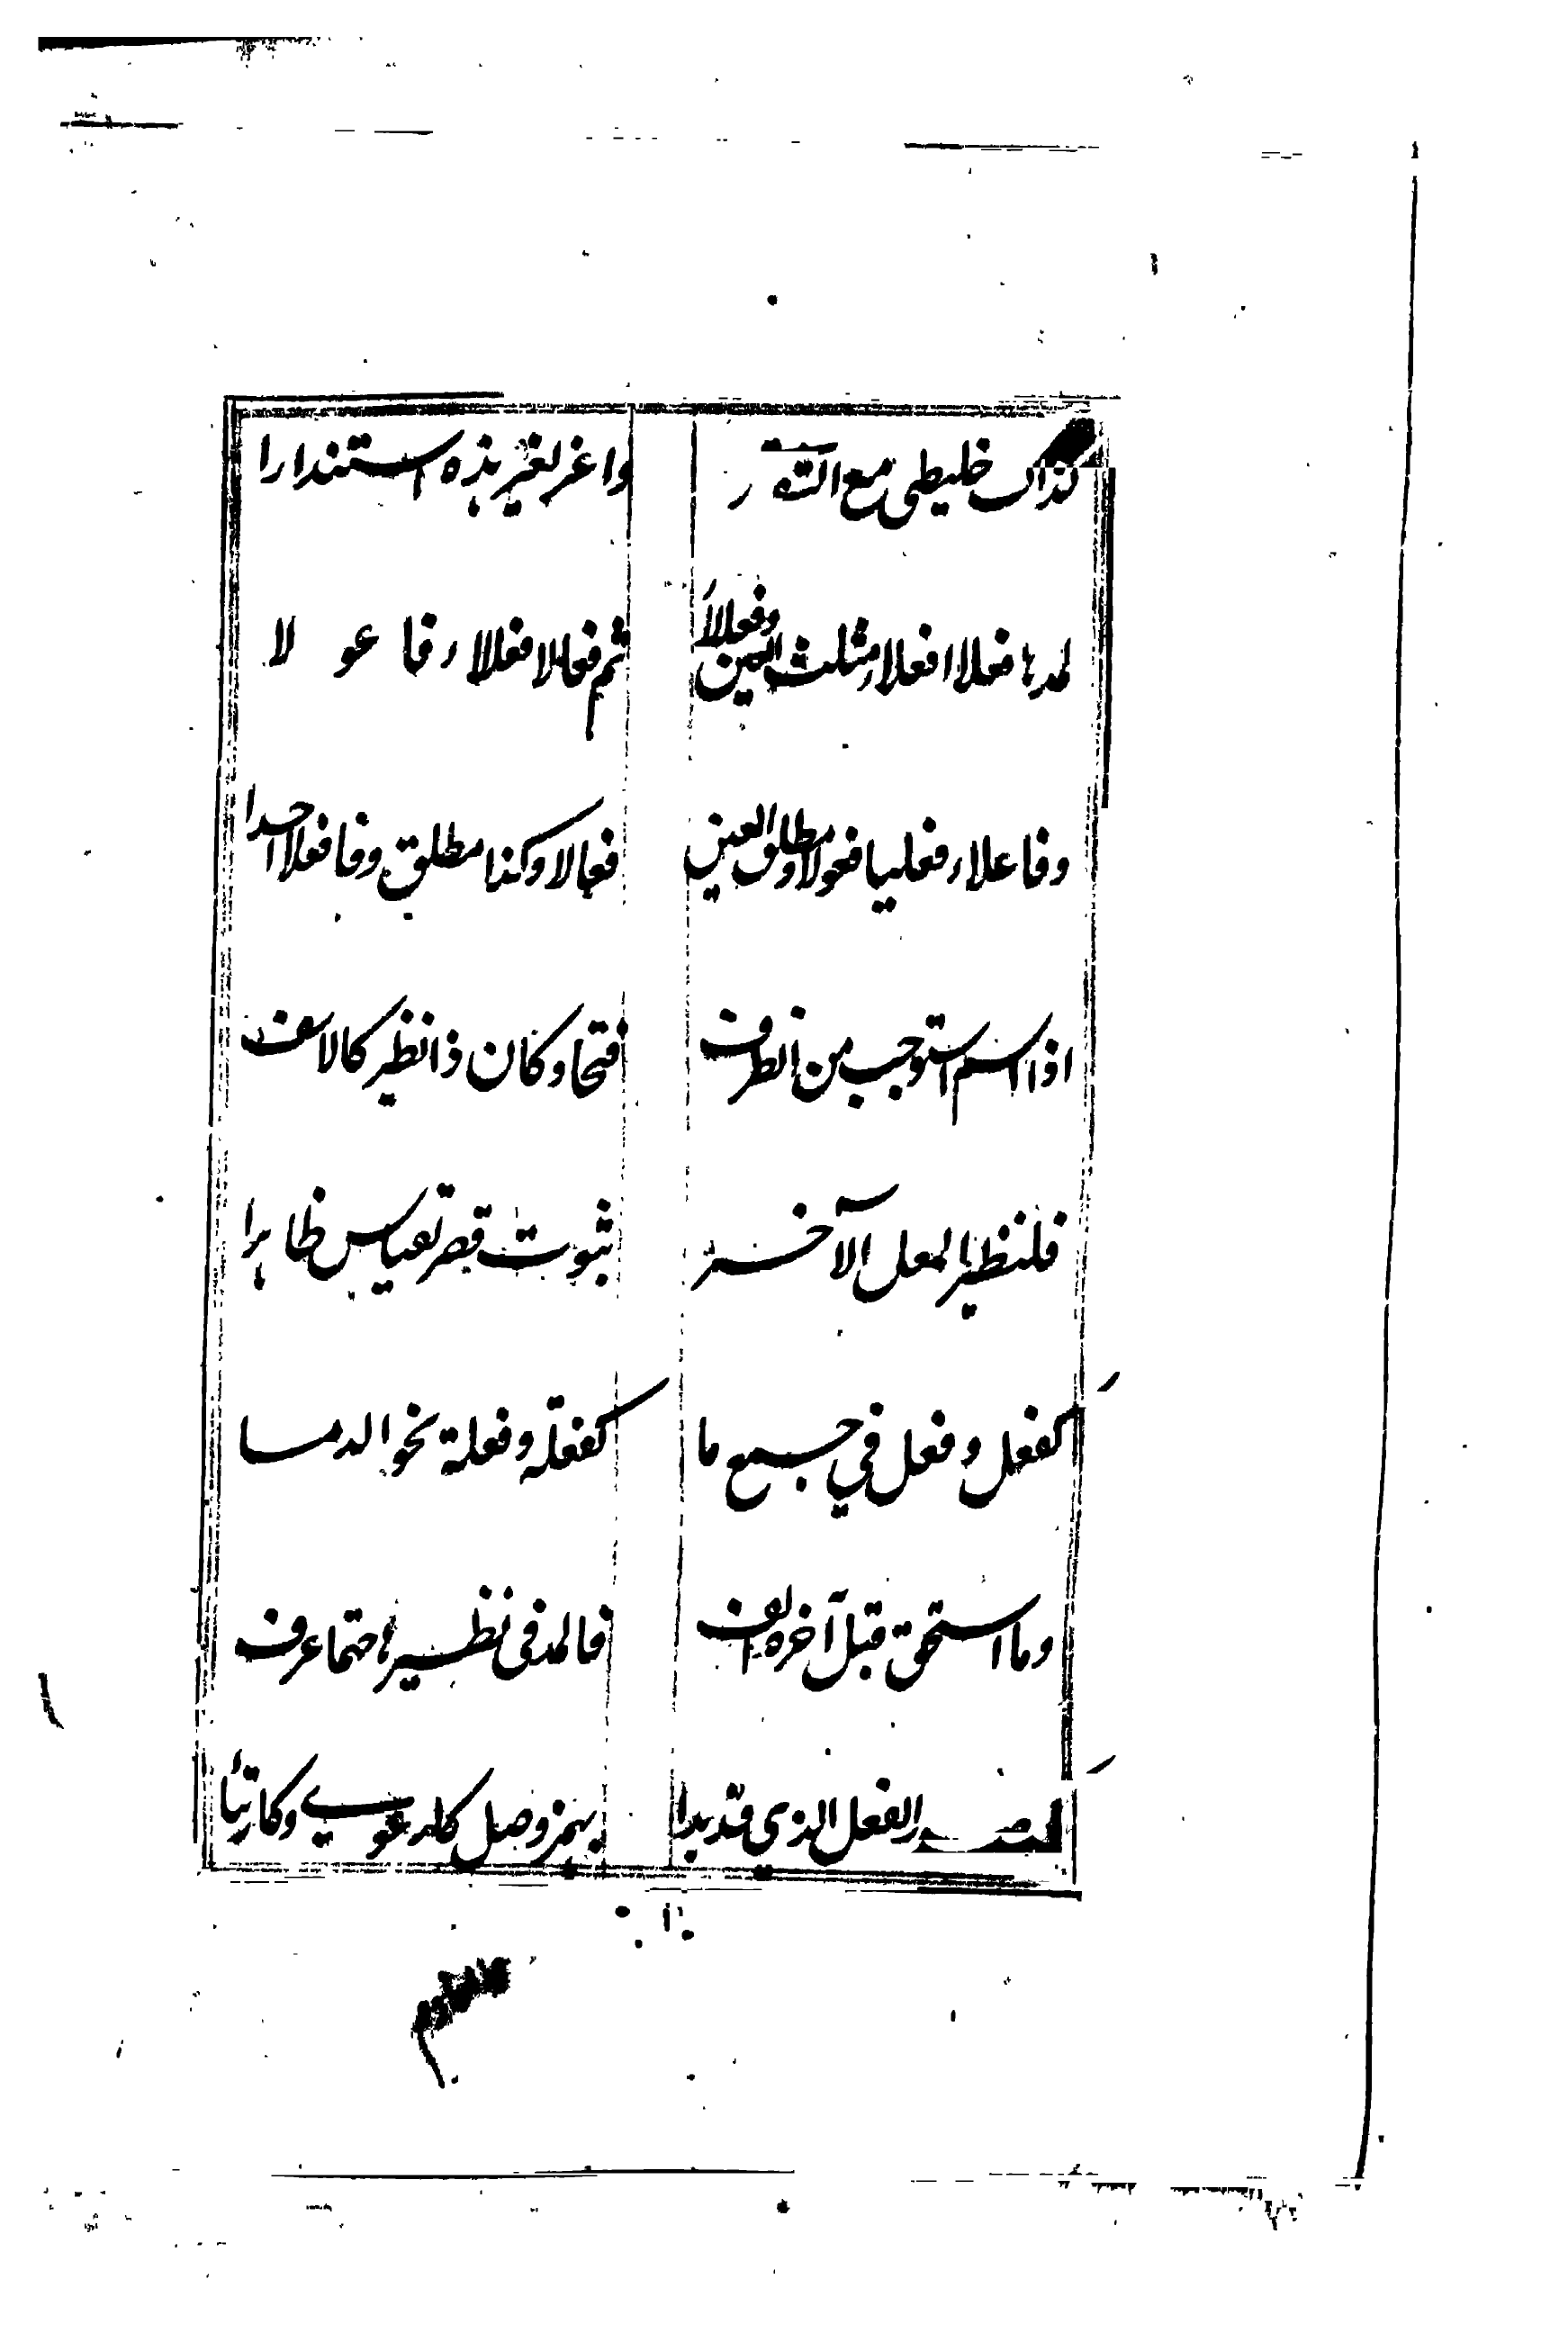 كذاك خليطى مع الشقار واعز لغير هذه استندارا
لمدها فعلاء افعلاء مثلث العين وفعللاء ثم فعالا فعللا فاعولا
وفاعلاء فعليا مفعولا ومطلق العين فعالا وكذا مطلق وفا فعلاء احدا
اذا اسم استوجب من الطرف فتحا وكان ذا نظير كالاسف
فلنظيره المعل الآخر ثبوت قصر بقياس ظاهرا
كفعل وفعل في جمع ما كفعلة وفعلة نحو الدما
وما استحق قبل آخره الف فالمد في نظيره حتما عرف
كمصدر الفعل الذي قد بدا بهمز وصل كارعوى وكارتأ